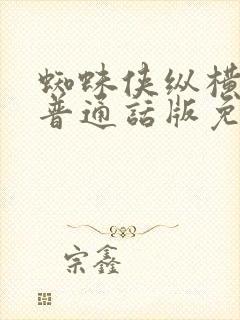 蜘蛛侠纵横
普通話版免
宗鑫